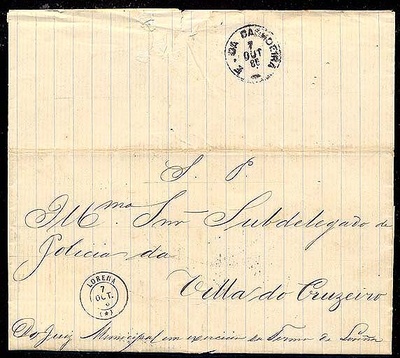 E. DA CACHOEIRA
7
OUT
86
S. P.
Illmo Snr Subdelegado de
Policia da
Villa do Cruzeiro
LORENA
7
OUT.
(*)
Do Juiz Municipal em exercicio do Termo de Lorena